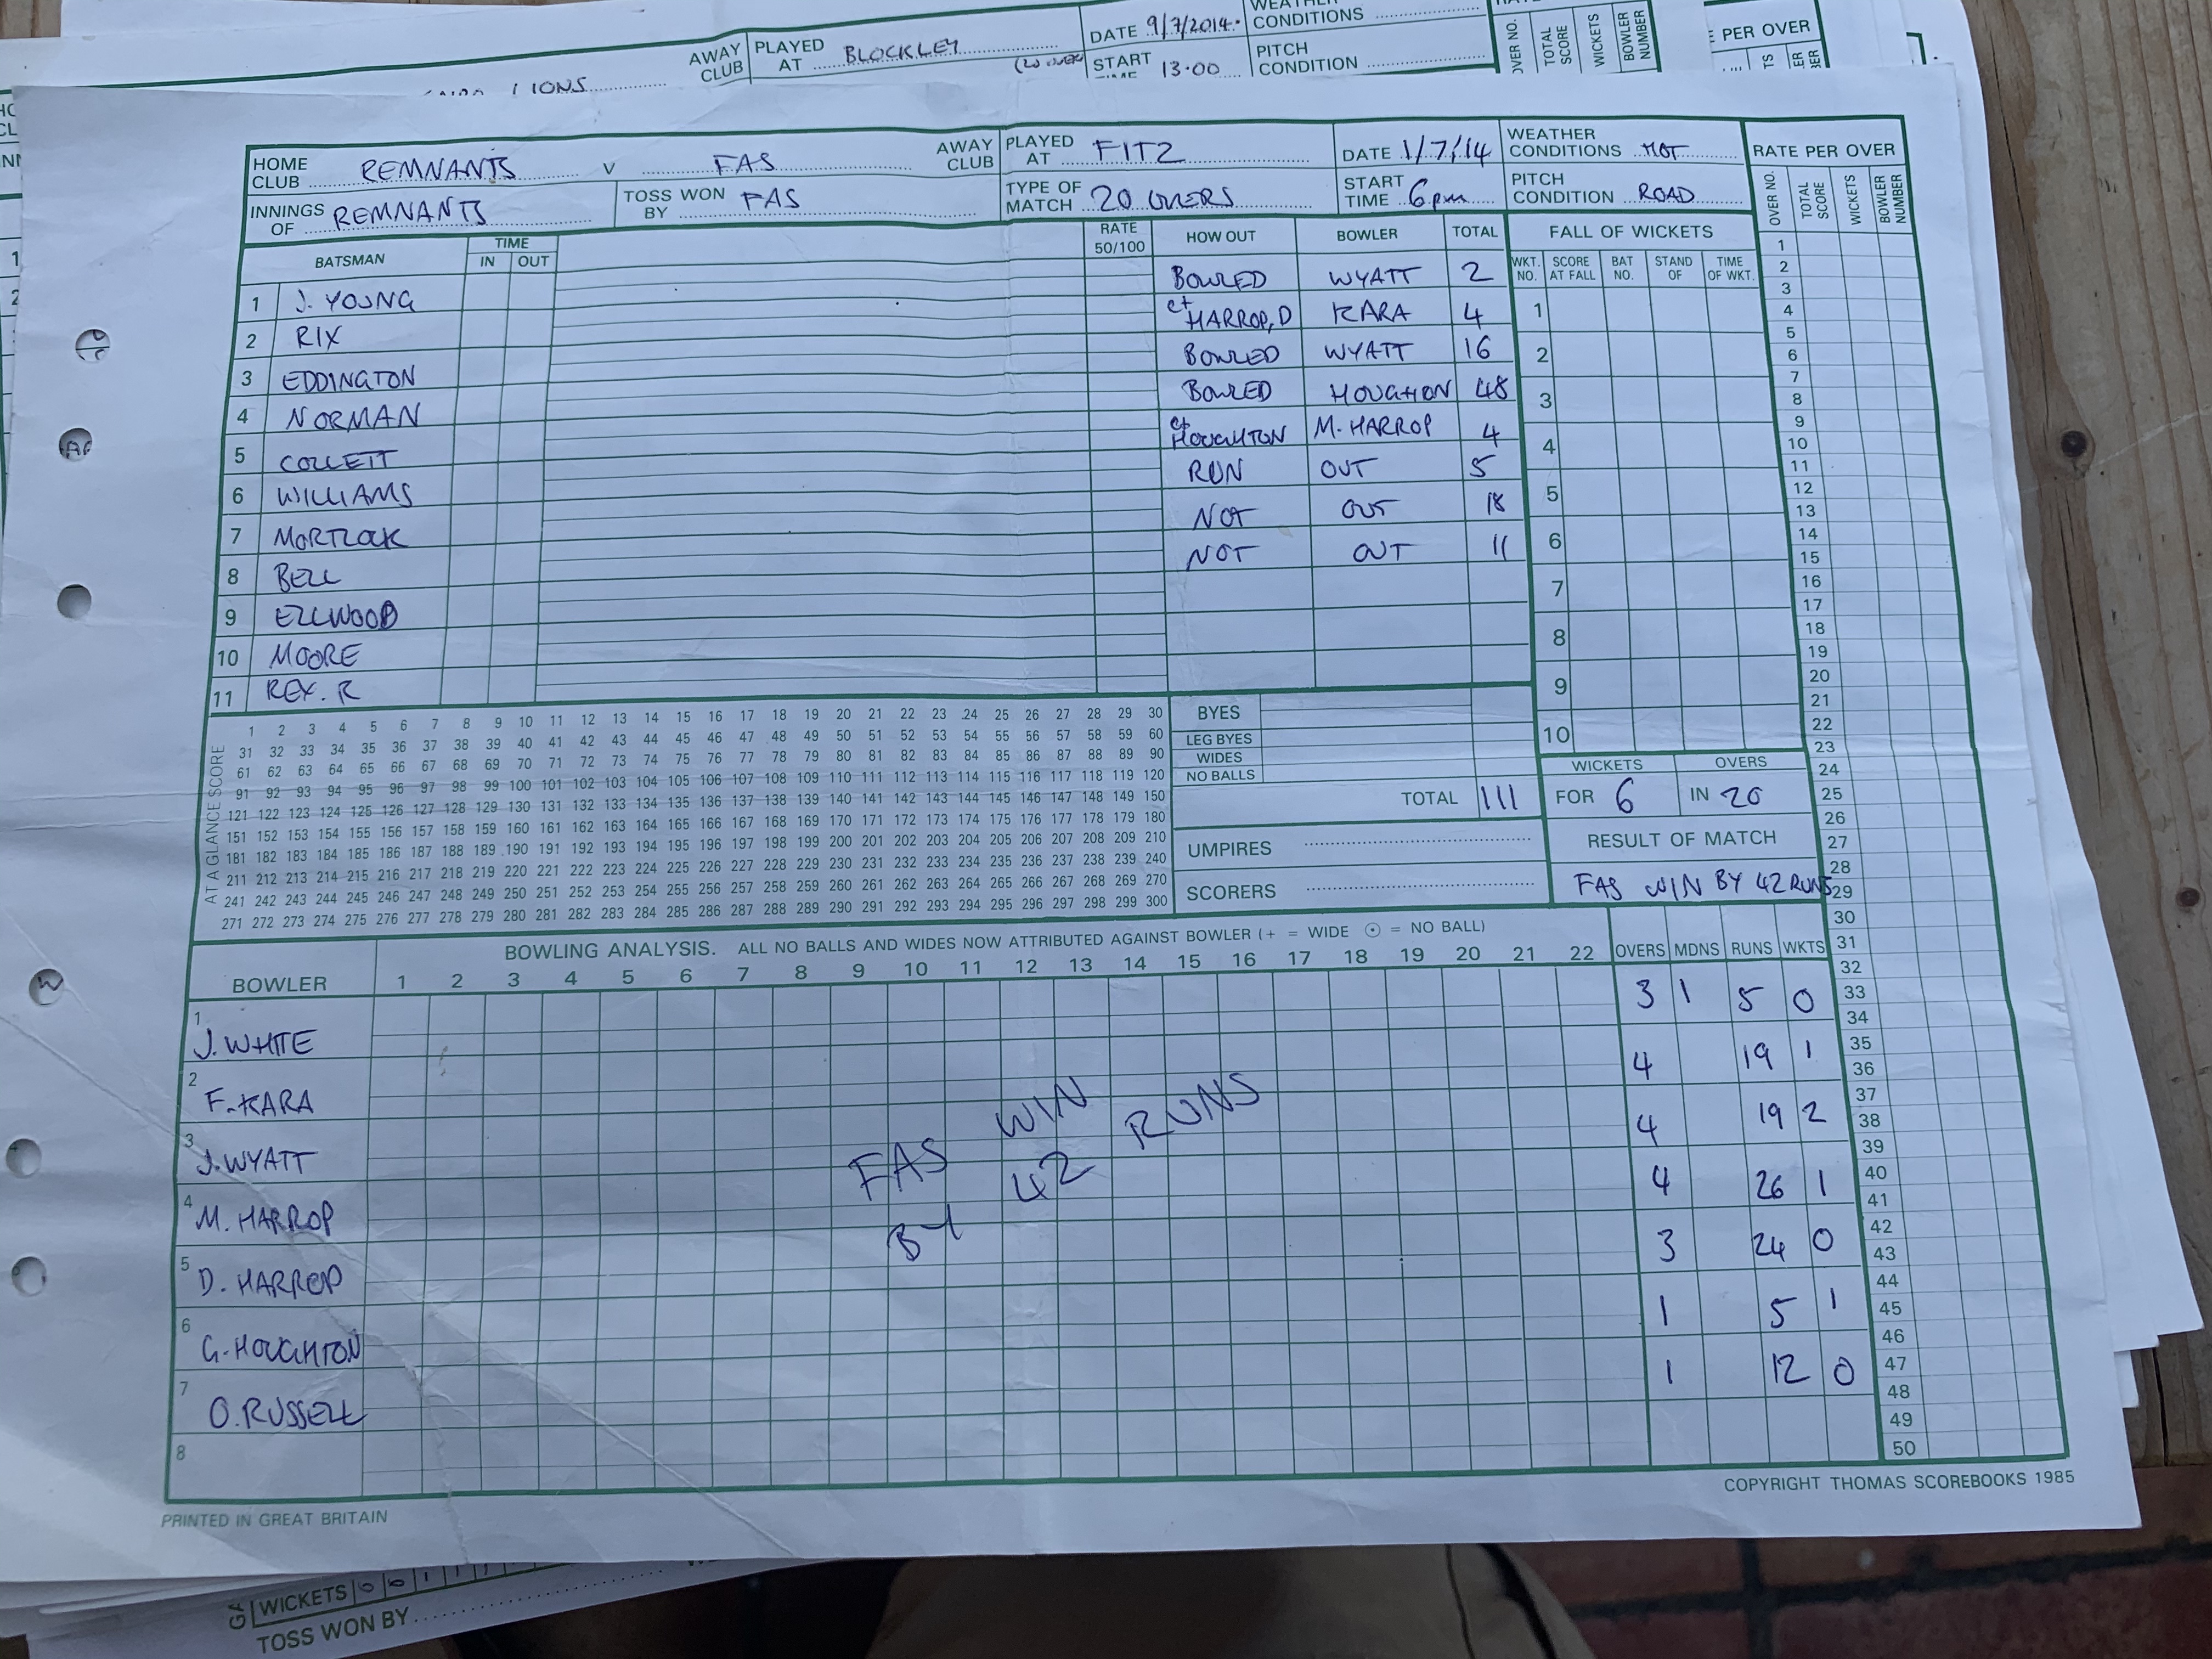 AWAY CLUB PLAYED AT BLOCKLEY DATE 9/7/2014. WEATHER CONDITIONS
LIONS START 13.00 PITCH CONDITION
OVER NO. TOTAL SCORE WICKETS BOWLER NUMBER
PER OVER
HOME CLUB REMNANTS V FAS AWAY CLUB PLAYED AT FITZ DATE 1/7/14 WEATHER CONDITIONS HOT RATE PER OVER
INNINGS OF REMNANTS TOSS WON BY FAS TYPE OF MATCH 20 OVERS START TIME 6pm PITCH CONDITION ROAD
OVER NO. TOTAL SCORE WICKETS BOWLER NUMBER
BATSMAN TIME IN OUT RATE 50/100 HOW OUT BOWLER TOTAL FALL OF WICKETS
WKT. NO. SCORE AT FALL BAT NO. STAND OF TIME OF WKT.
1 J. YOUNG BOWLED WYATT 2
2 RIX ct HARROP, D KARA 4
3 EDDINGTON BOWLED WYATT 16
4 NORMAN BOWLED HOUGHTON 48
5 COLLETT ct HOUGHTON M. HARROP 4
6 WILLIAMS RUN OUT 5
7 MORTLOCK NOT OUT 18
8 BELL NOT OUT 11
9 ELLWOOD
10 MOORE
11 REX. R
1
2
3
4
5
6
7
8
9
10
AT A GLANCE SCORE
1 2 3 4 5 6 7 8 9 10 11 12 13 14 15 16 17 18 19 20 21 22 23 24 25 26 27 28 29 30
31 32 33 34 35 36 37 38 39 40 41 42 43 44 45 46 47 48 49 50 51 52 53 54 55 56 57 58 59 60
61 62 63 64 65 66 67 68 69 70 71 72 73 74 75 76 77 78 79 80 81 82 83 84 85 86 87 88 89 90
91 92 93 94 95 96 97 98 99 100 101 102 103 104 105 106 107 108 109 110 111 112 113 114 115 116 117 118 119 120
121 122 123 124 125 126 127 128 129 130 131 132 133 134 135 136 137 138 139 140 141 142 143 144 145 146 147 148 149 150
151 152 153 154 155 156 157 158 159 160 161 162 163 164 165 166 167 168 169 170 171 172 173 174 175 176 177 178 179 180
181 182 183 184 185 186 187 188 189 190 191 192 193 194 195 196 197 198 199 200 201 202 203 204 205 206 207 208 209 210
211 212 213 214 215 216 217 218 219 220 221 222 223 224 225 226 227 228 229 230 231 232 233 234 235 236 237 238 239 240
241 242 243 244 245 246 247 248 249 250 251 252 253 254 255 256 257 258 259 260 261 262 263 264 265 266 267 268 269 270
271 272 273 274 275 276 277 278 279 280 281 282 283 284 285 286 287 288 289 290 291 292 293 294 295 296 297 298 299 300
BYES
LEG BYES
WIDES
NO BALLS
TOTAL 111
UMPIRES
SCORERS
WICKETS OVERS
FOR 6 IN 20
RESULT OF MATCH
FAS WIN BY 42 RUNS
BOWLING ANALYSIS. ALL NO BALLS AND WIDES NOW ATTRIBUTED AGAINST BOWLER (+ = WIDE ⊙ = NO BALL)
BOWLER 1 2 3 4 5 6 7 8 9 10 11 12 13 14 15 16 17 18 19 20 21 22 OVERS MDNS RUNS WKTS
1 J. WHITE 3 1 5 0
2 F. KARA 4 19 1
3 J. WYATT 4 19 2
4 M. HARROP 4 26 1
5 D. HARROP 3 24 0
6 G. HOUGHTON 1 5 1
7 O. RUSSELL 1 12 0
8
FAS WIN
BY 42 RUNS
1
2
3
4
5
6
7
8
9
10
11
12
13
14
15
16
17
18
19
20
21
22
23
24
25
26
27
28
29
30
31
32
33
34
35
36
37
38
39
40
41
42
43
44
45
46
47
48
49
50
PRINTED IN GREAT BRITAIN
COPYRIGHT THOMAS SCOREBOOKS 1985
WICKETS 0 0 1 1
TOSS WON BY